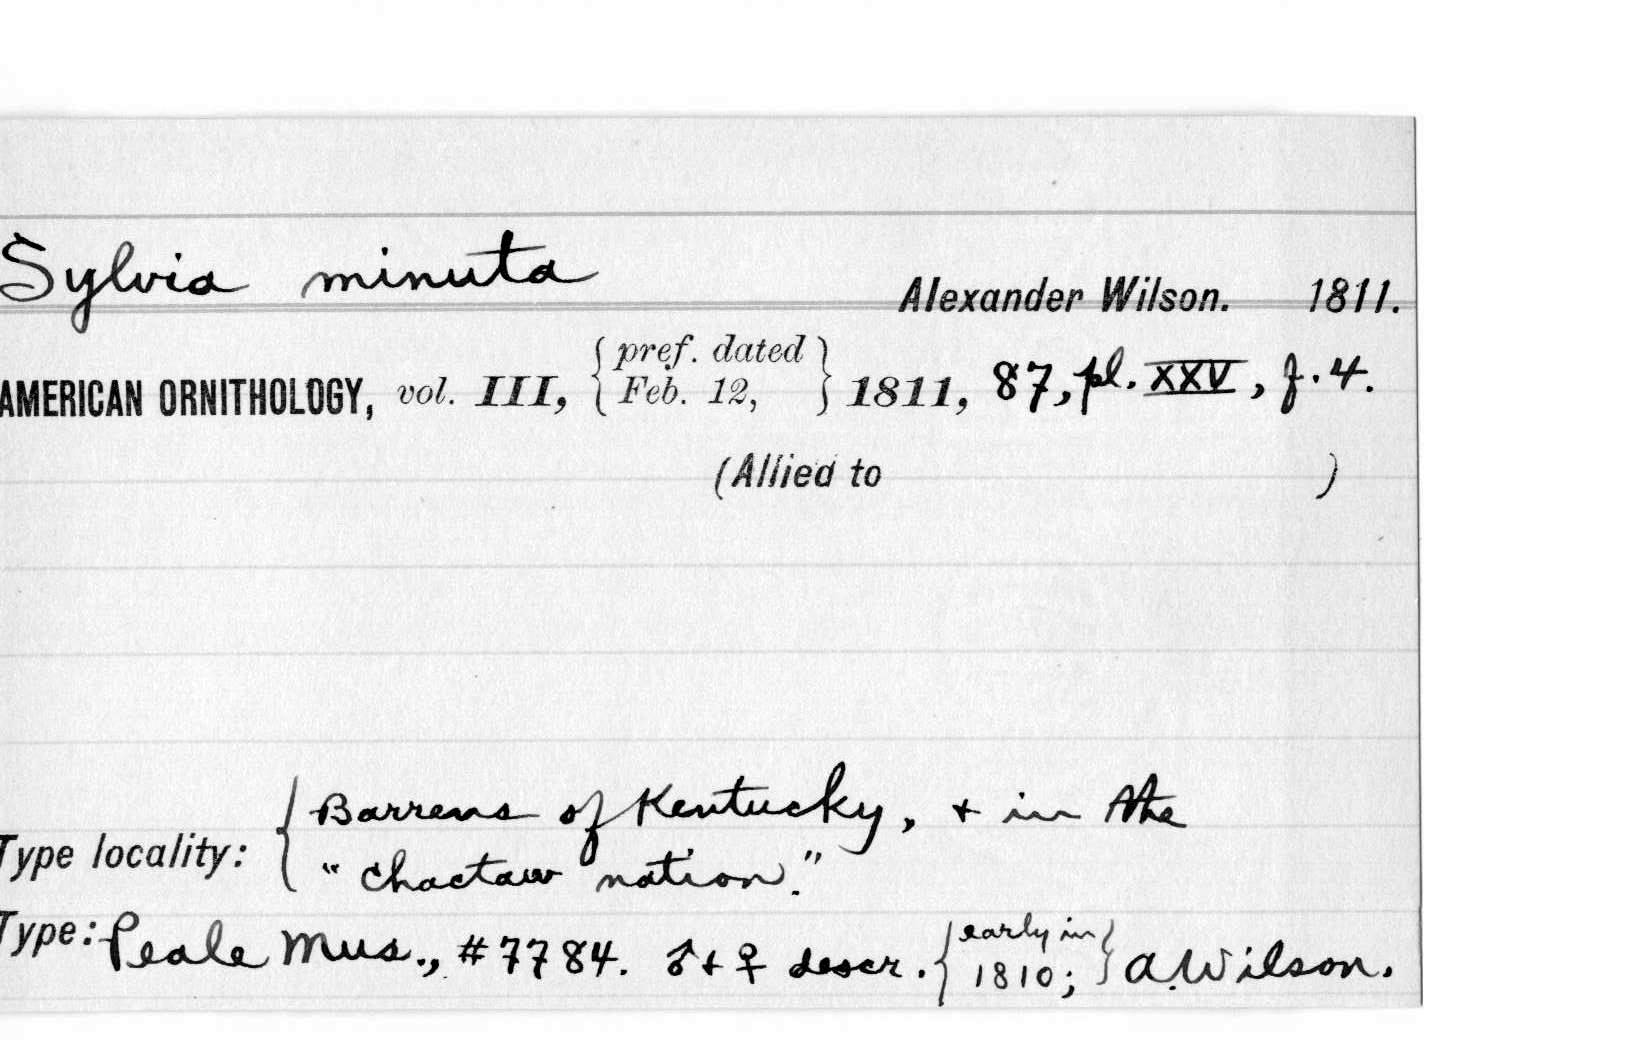 Sylvia minuta
Alexander Wilson. 1811.
AMERICAN ORNITHOLOGY, vol. III, { pref. dated Feb. 12, } 1811, 87, pl. XXV, f. 4.
(Allied to )
Type locality: { Barrens of Kentucky, + in the
"Chactaw nation."
Type: Peale Mus., #7784. ♂ + ♀ descr. { early in 1810; } A. Wilson.